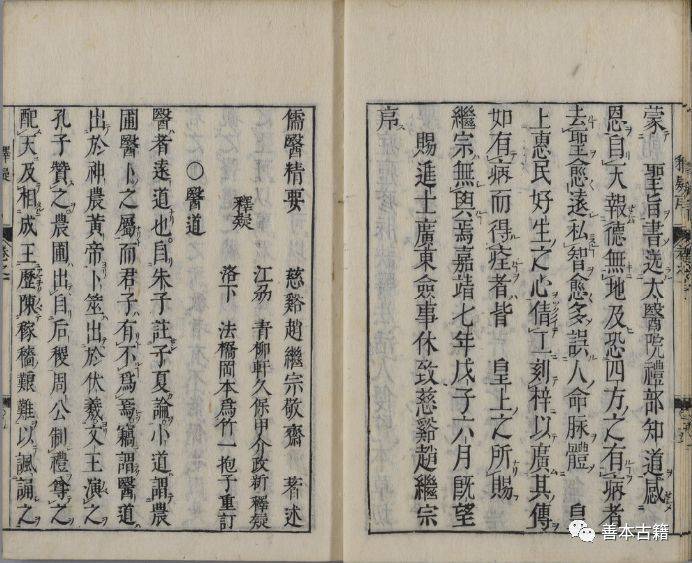 蒙　聖旨書送太醫院禮部知道感
恩自天報德無地及恐四方之有病者
去聖愈遠私智愈多誤人命脉體　皇
上惠民好生之心倩工刻梓以廣其傳
如有病而得痊者皆　皇上之所賜
繼宗無與焉嘉靖七年戊子六月既望
賜進士廣東僉事休致慈谿趙繼宗
序
儒醫精要　慈谿趙繼宗敬齋　著述
釋疑　江州　青柳軒久保甲介政新釋疑
洛下　法橋岡本爲竹一抱子重訂
○醫道
醫者遠道也自朱子註子夏論小道謂農
圃醫卜之屬而君子有不爲焉竊謂醫道
出於神農黃帝卜筮出於伏羲文王演之
孔子贊之農圃出自后稷周公制禮尊之
配天及相成王歷陳稼穡艱難以諷誦之
釋疑
卷之一
善本古籍